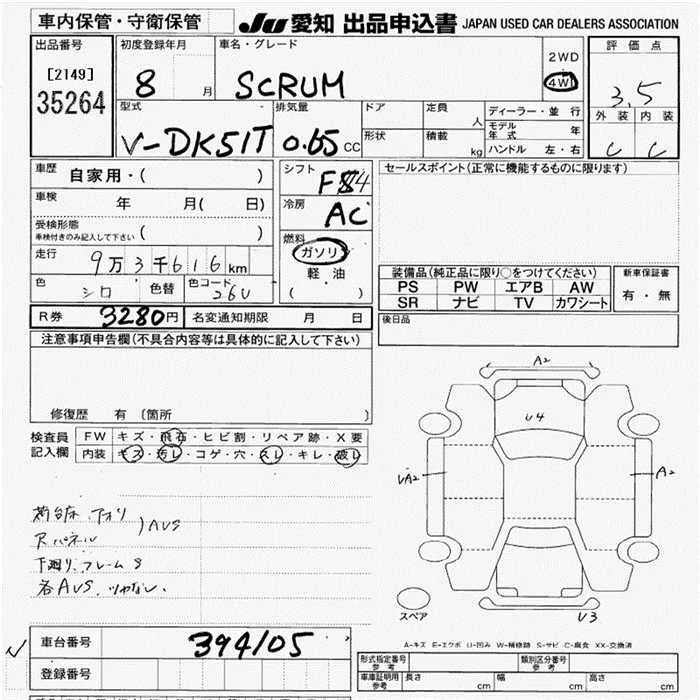 車内保管・守衛保管
JU 愛知 出品申込書 JAPAN USED CAR DEALERS ASSOCIATION
出品番号
[2149]
35264
初度登録年月
8 月
車名・グレード
SCRUM
2WD
4W
評価点
3.5
外装 内装
C C
型式
V-DK51T
排気量
0.65 CC
ドア
定員 人
形状
積載 kg
ディーラー・並行
モデル年式 年
ハンドル 左・右
車歴 自家用・( )
車検 年 月( 日)
受検形態
車検付きのみ記入して下さい ( )
走行 9万3千616km
色 シロ 色替 色コード 26U
シフト
冷房 AC
燃料
ガソリン
軽油
( )
セールスポイント(正常に機能するものに限ります)
装備品(純正品に限り○をつけてください)
PS PW エアB AW
SR ナビ TV カワシート
新車保証書
有・無
R券 3280円 名変通知期限 月 日
後日品
注意事項申告欄(不具合内容等は具体的に記入して下さい)
修復歴 有 〔箇所 〕
検査員記入欄
FW キズ・飛石・ヒビ割・リペア跡・X要
内装 キズ・汚レ・コゲ・穴・スレ・キレ・破レ
荷台床 アオリ
Rパネル
)AUS
下廻り、フレームS
各AUS、ツヤなし、
A2
U4
UA2
A2
U3
スペア
A-キズ E-エクボ U-凹み W-補修跡 S-サビ C-腐食 XX-交換済
車台番号 394105
登録番号
形式指定番号 参考
類別区分番号 参考
車庫証明用 参考 長さ cm 幅 cm 高さ cm